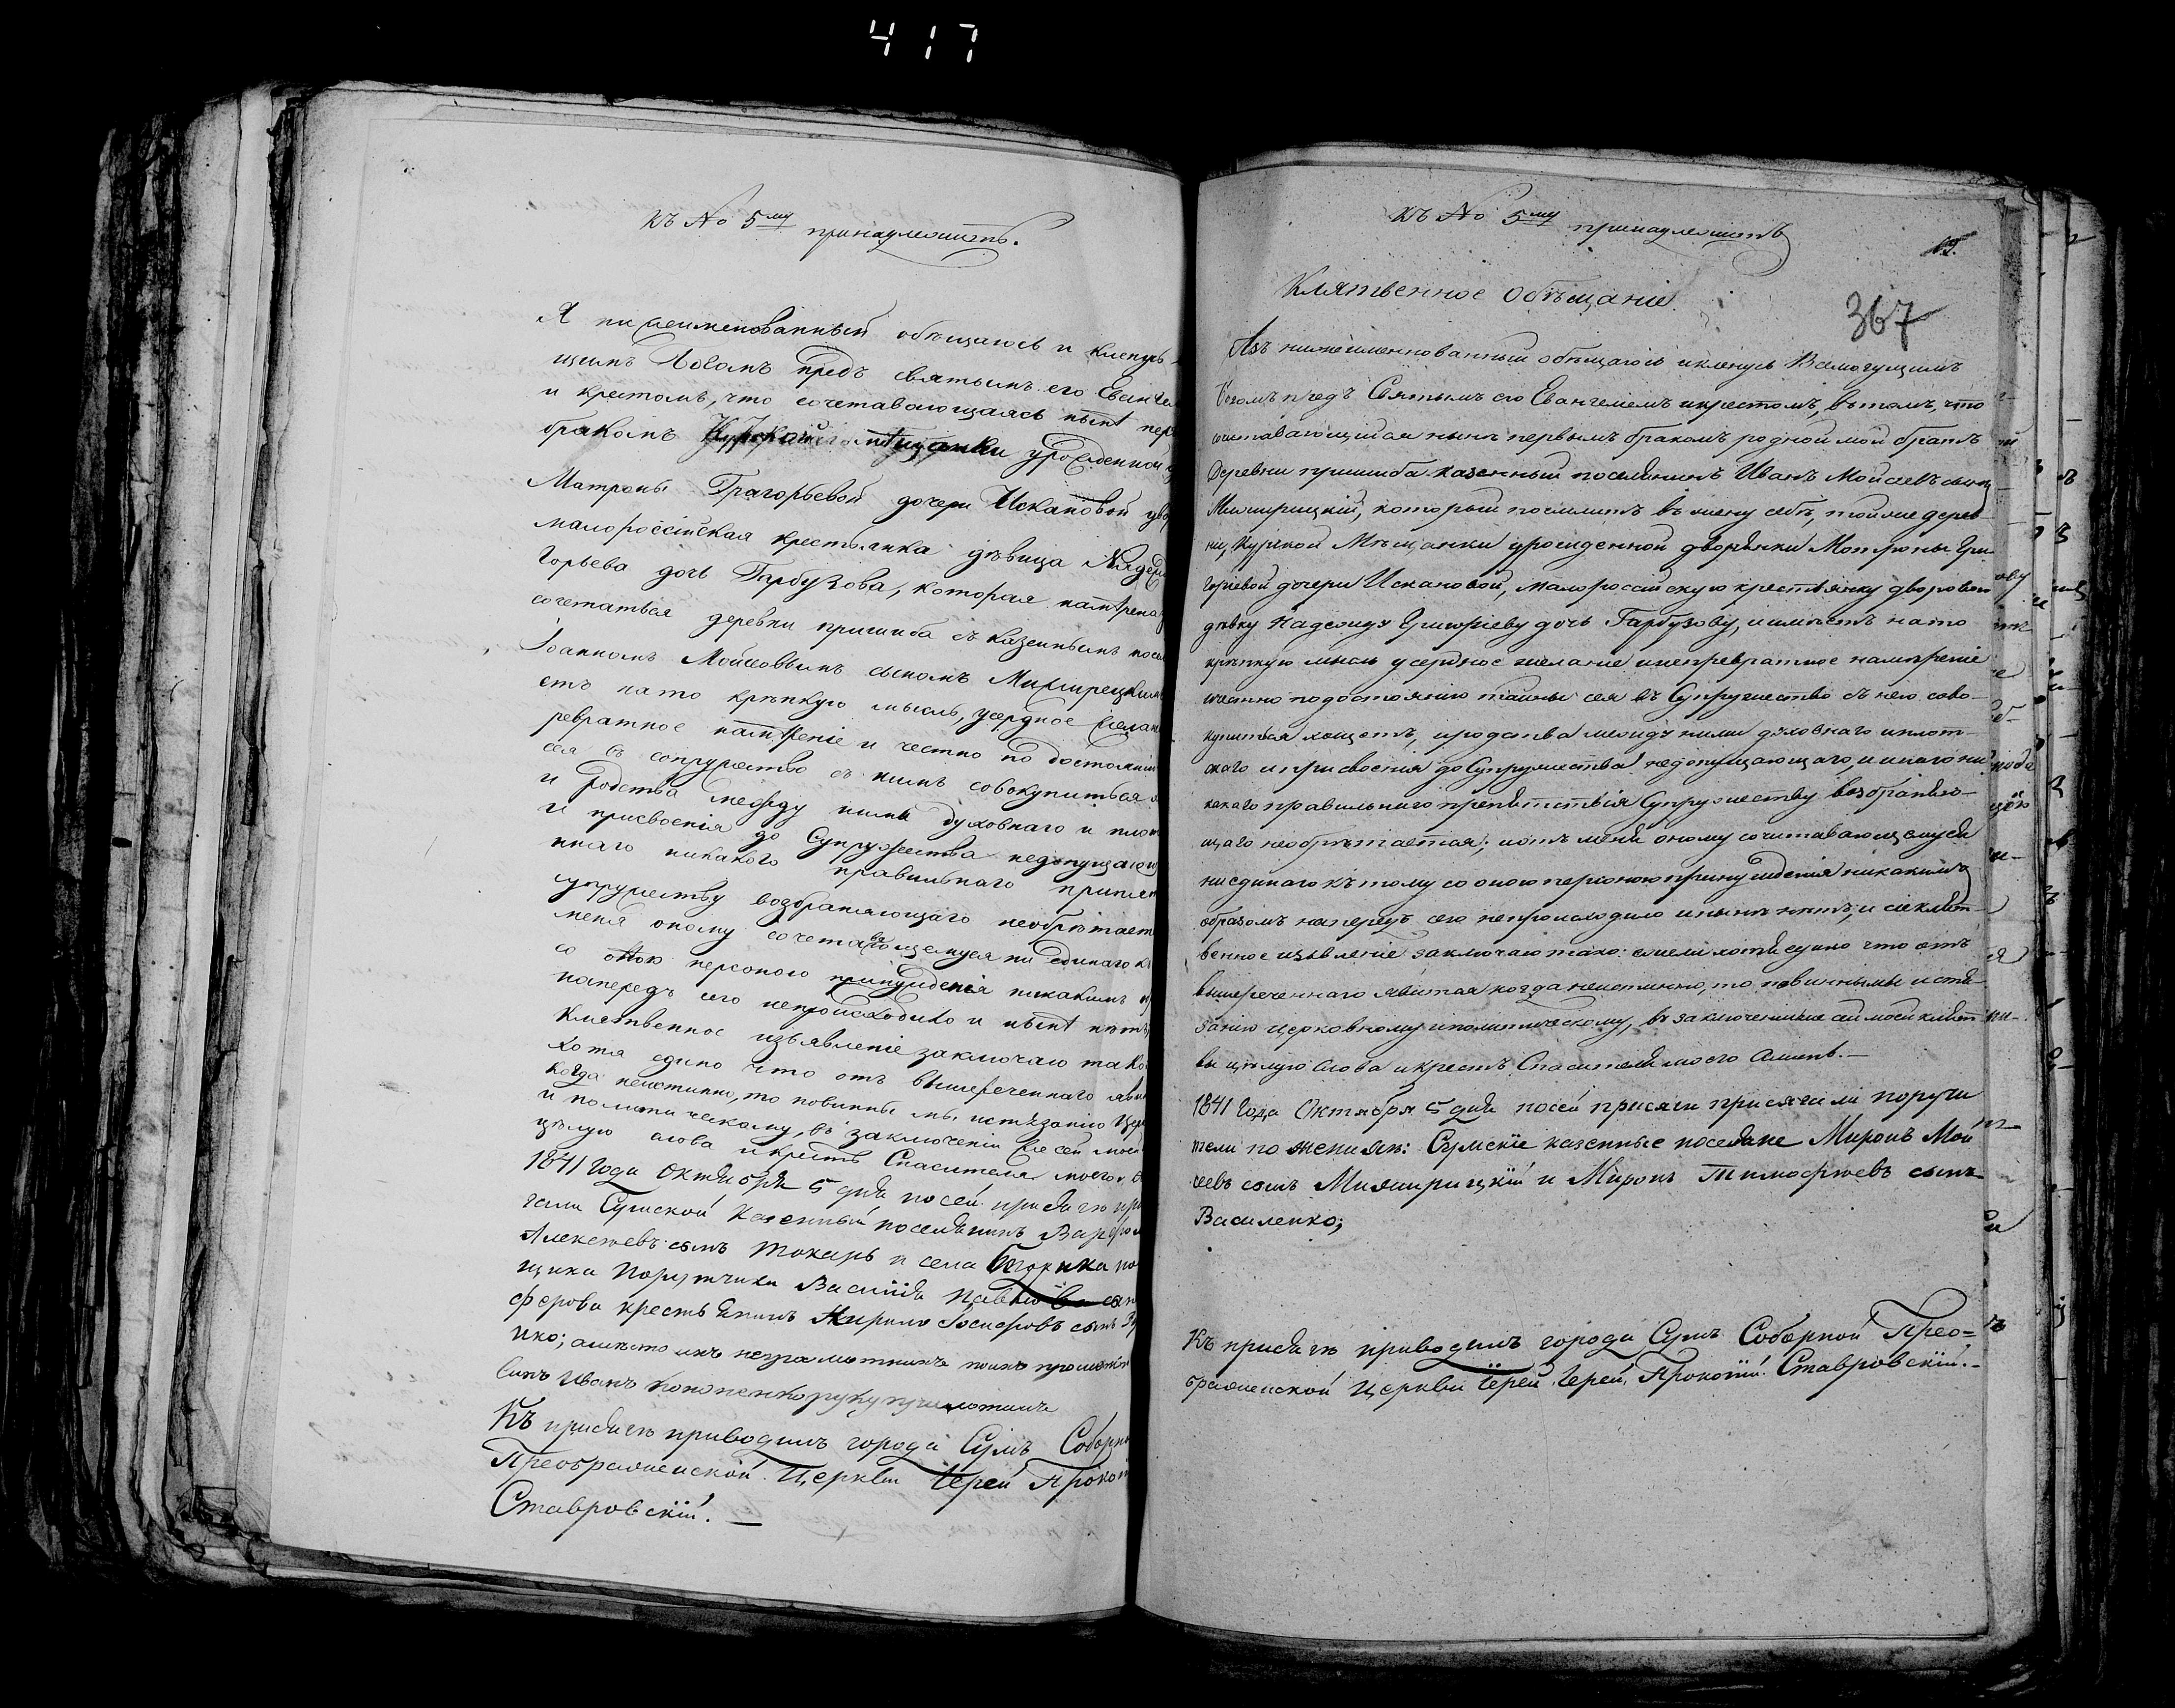 417
къ № 5му принадлежитъ.
Я нижеименованный обѣщаюсь и кленусь
щимъ Богомъ предъ святымъ его Еванге
и крестомъ, что сочетавающаяся нынѣ пер
бракомъ Курской мѣщанки урожденной
Матроны Григорьевой дочери Искановой дво
малороссійская крестьянка дѣвица Надеж
горьева дочь Гарбузова, которая намѣрена
сочетаться деревни пришиба съ казеннымъ посе
Іоанномъ Мойсеовымъ сыномъ Миширецким
етъ на то крѣпкую мысль, усердное желан
ревратное намѣреніе и честно по достоянію
сея въ сопружество съ нимъ совокупиться
и родства между ними духовнаго и плот
и присвоенія до Супружества недопущающ
инаго никакого правильнаго препят
супружеству возбраняющаго необрѣтает
меня оному сочетавающемуся ни единаго к
со оною персоною принужденія никакимъ
напередъ сего непроисходило и нынѣ нѣтъ
Клятвенное изъявленіе заключаю тако
хотя едино что отъ вышереченнаго яви
когда неистинно, то повинны мы истязанію цер
и политическому, въ заключеніи же сей моей
цѣлую слова и крестъ Спасителя моего.
1841 года Октября 5 дня по сей присягѣ при
гали Сумской казенный поселянинъ Варфол
Алексѣевъ сынъ Токарь и села
щика Порутчика Василія
ферова крестьянинъ Кирило Іосифовъ сынъ
нко; а вмѣсто ихъ неграмотныхъ
синъ Иванъ Кононенко руку приложилъ
Къ присягѣ приводилъ города Сумъ Соборн
Преображенской Церкви Іерей Прокоп
Ставровскій. —
къ № 5му принадлежитъ
19.
367
Клятвенное обѣщаніе.
Азъ нижеименнованный обѣщаюсь и кленусь Всемогущимъ
Богомъ предъ Святымъ его Евангеліемъ и крестомъ, въ томъ, что
сочетавающійся нынѣ первымъ бракомъ родной мой братъ
Деревни пришиба казенный поселянинъ Иванъ Мойсеевъ сынъ
Миширицкій, который поемлетъ въ жену себѣ, той же дерев-
ни, Курской Мѣщанки урожденной дворянки Мотроны Гри-
горіевой дочери Искановой, малороссійскую крестьянку дворовою
дѣвку Надежду Григоріеву дочь Гарбузову, и имѣетъ на то
крѣпкую мысль усердное желаніе и непревратное намѣреніе
и честно по достоянію тайны сея въ Супружество съ нею сово-
купиться хощетъ, и родства между ними духовнаго и плот-
скаго и присвоенія до Супружества недопущающаго, и инаго ни
какаго правильнаго препятствія Супружеству возбраняю-
щаго необрѣтается; и отъ меня оному сочитавающемуся
ни единаго къ тому со оною персоною принужденія никакимъ
образомъ напередъ сего непроисходило и нынѣ нѣтъ, и сіе клят-
венное изъявленіе заключаю тако: ежели хотя едино что отъ
вышереченнаго явится когда неистинно, то повинны мы истя-
занію церковному и политическому, въ заключеніи же сей моей клят
вы цѣлую слова и крестъ Спасителя моего Аминь. —
1841 Года Октября 5 дня по сей присяги присягали поручи
тели по женихѣ: Сумскіе казенные поселяне Миронъ Мой
сеевъ сынъ Миширицкій и Миронъ Тимофѣевъ сынъ
Василенко;
Къ присягѣ приводилъ города Сумъ Соборной Прео=
браженской Церкви Іерей Іерей Прокопій Ставровскій. -